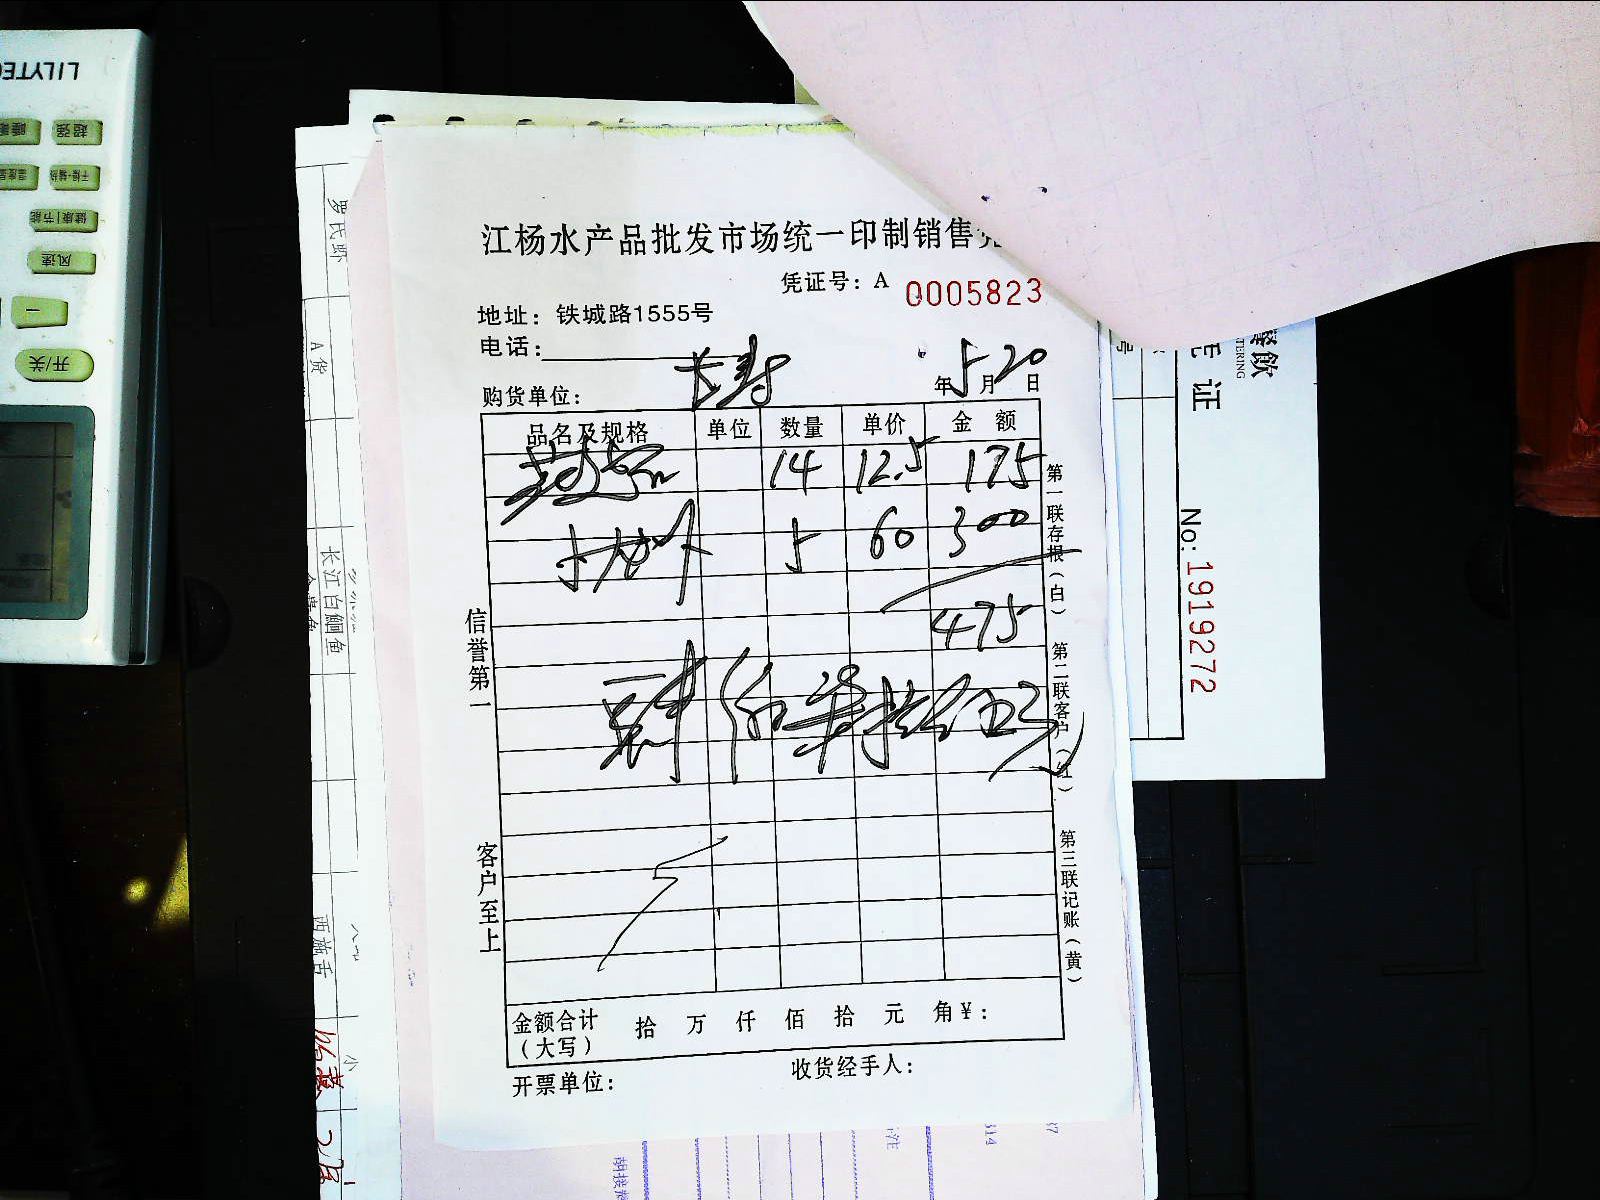 江杨水产品批发市场统一印制销售
凭证号：A 0005823
地址：铁城路1555号
电话：
购货单位：长寿
年5月20日
品名及规格 单位 数量 单价 金 额
14 12.5 175
5 60 300
475
肆佰柒拾伍元
金额合计（大写） 拾 万 仟 佰 拾 元 角 ¥：
开票单位：
收货经手人：
信誉第一
客户至上
第一联存根（白）
第二联客户（红）
第三联记账（黄）
No: 1919272
餐飲
证
LILYTE
超强
健康|节能
风速
开/关
A货
长江白鮰鱼
西施舌